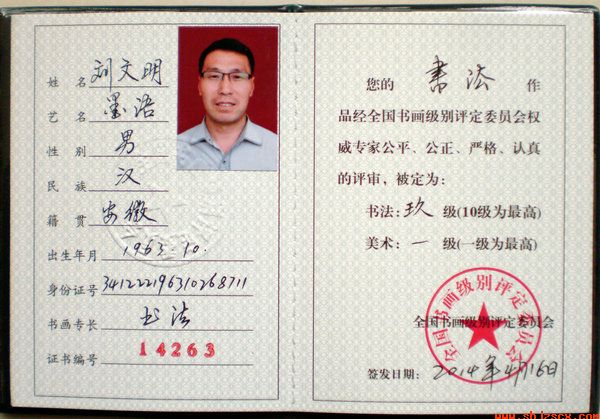 姓名 刘文明
艺名 墨语
性别 男
民族 汉
籍贯 安徽
出生年月 1963.10.
身份证号 341222196310268711
书画专长 书法
证书编号 14263
您的 书法 作
品经全国书画级别评定委员会权
威专家公平、公正、严格、认真
的评审，被定为：
书法：玖 级(10级为最高)
美术：一 级(一级为最高)
全国书画级别评定委员会
全国书画级别评定委员会
签发日期：2014年4月16日
www.shjzscx.com